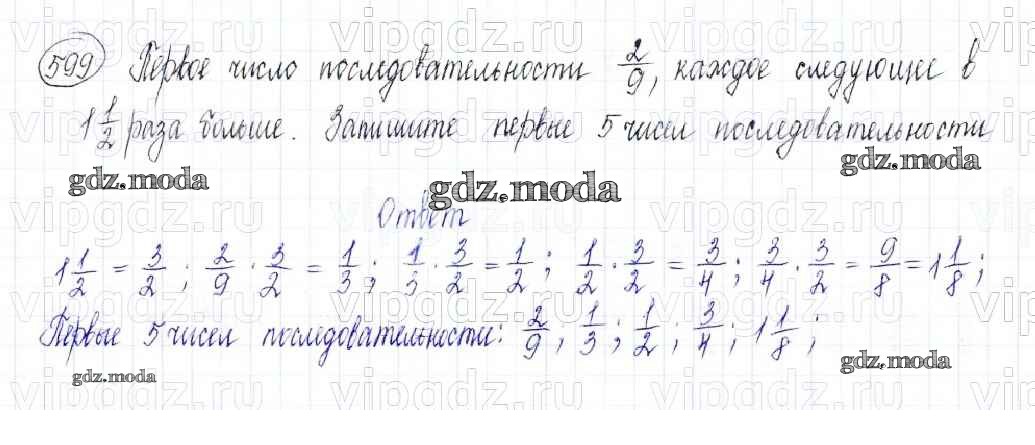 599 Первое число последовательности 2/9, каждое следующее в
1 1/2 раза больше. Запишите первые 5 чисел последовательности
gdz.moda gdz.moda gdz.moda
Ответ
1 1/2 = 3/2; 2/9 · 3/2 = 1/3; 1/3 · 3/2 = 1/2; 1/2 · 3/2 = 3/4; 3/4 · 3/2 = 9/8 = 1 1/8;
Первые 5 чисел последовательности: 2/9; 1/3; 1/2; 3/4; 1 1/8;
gdz.moda gdz.moda